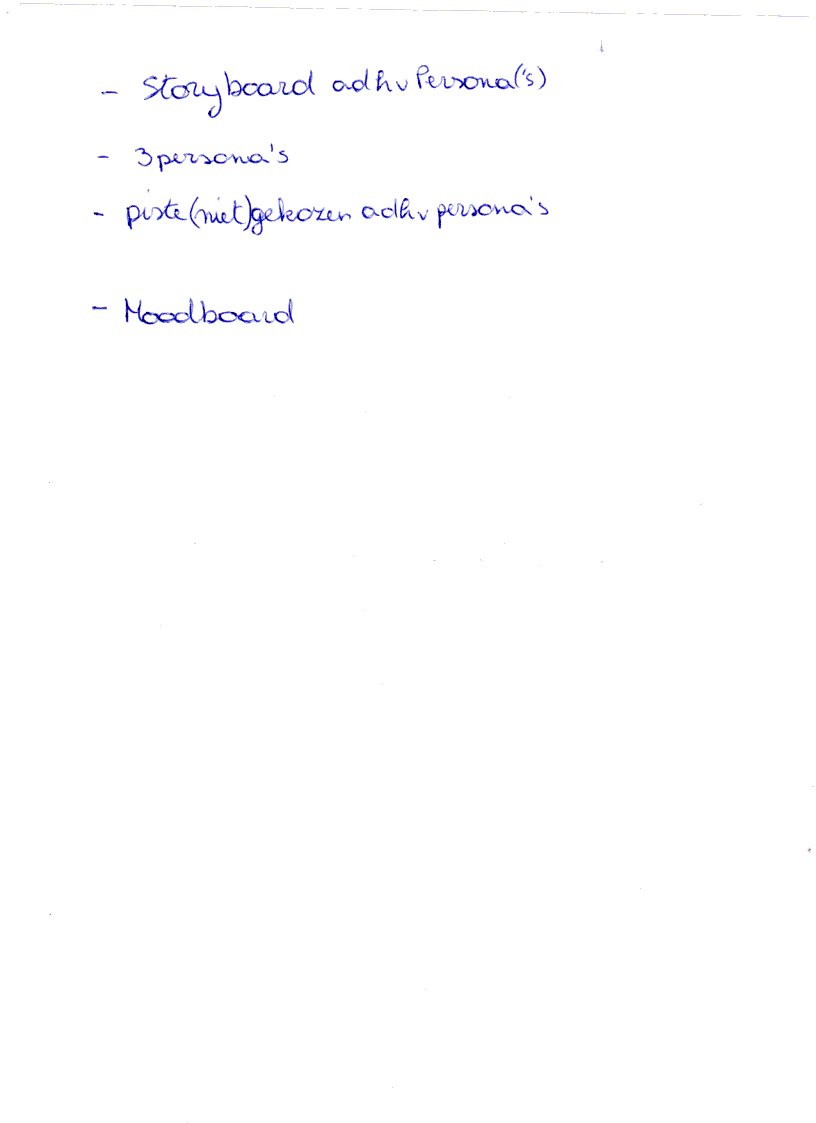 - Storyboard adhv Persona('s)
- 3 persona's
- piste (niet) gekozen adhv persona's
- Moodboard